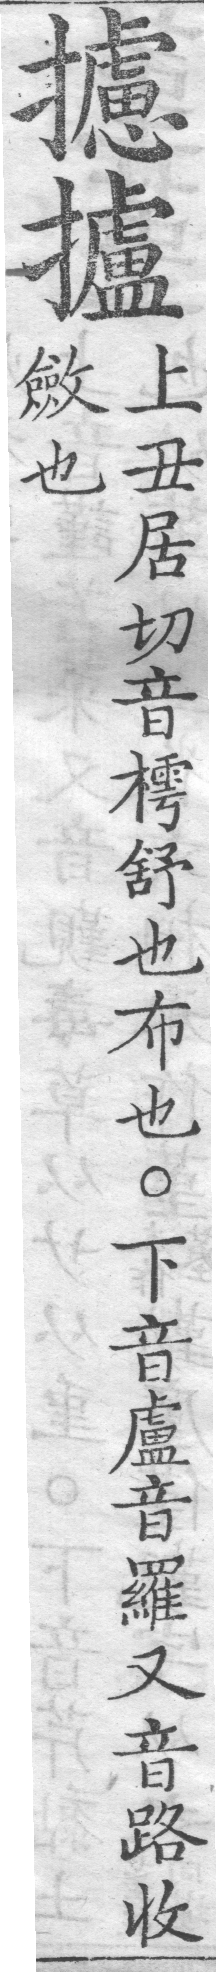 攄攎
上丑居切音樗舒也布也○下音盧音羅又音路收
斂也